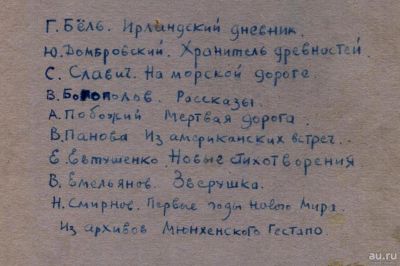 Г. Бёль. Ирландский дневник.
Ю. Домбровский. Хранитель древностей.
С. Славич. На морской дороге.
В. Богополов. Рассказы.
А. Побожий Мертвая дорога.
В. Панова Из американских встреч.
Е. Евтушенко. Новые стихотворения
В. Емельянов. Зверушка.
Н. Смирнов. Первые годы Нового Мира.
Из архивов Мюнхенского Гестапо.
au.ru